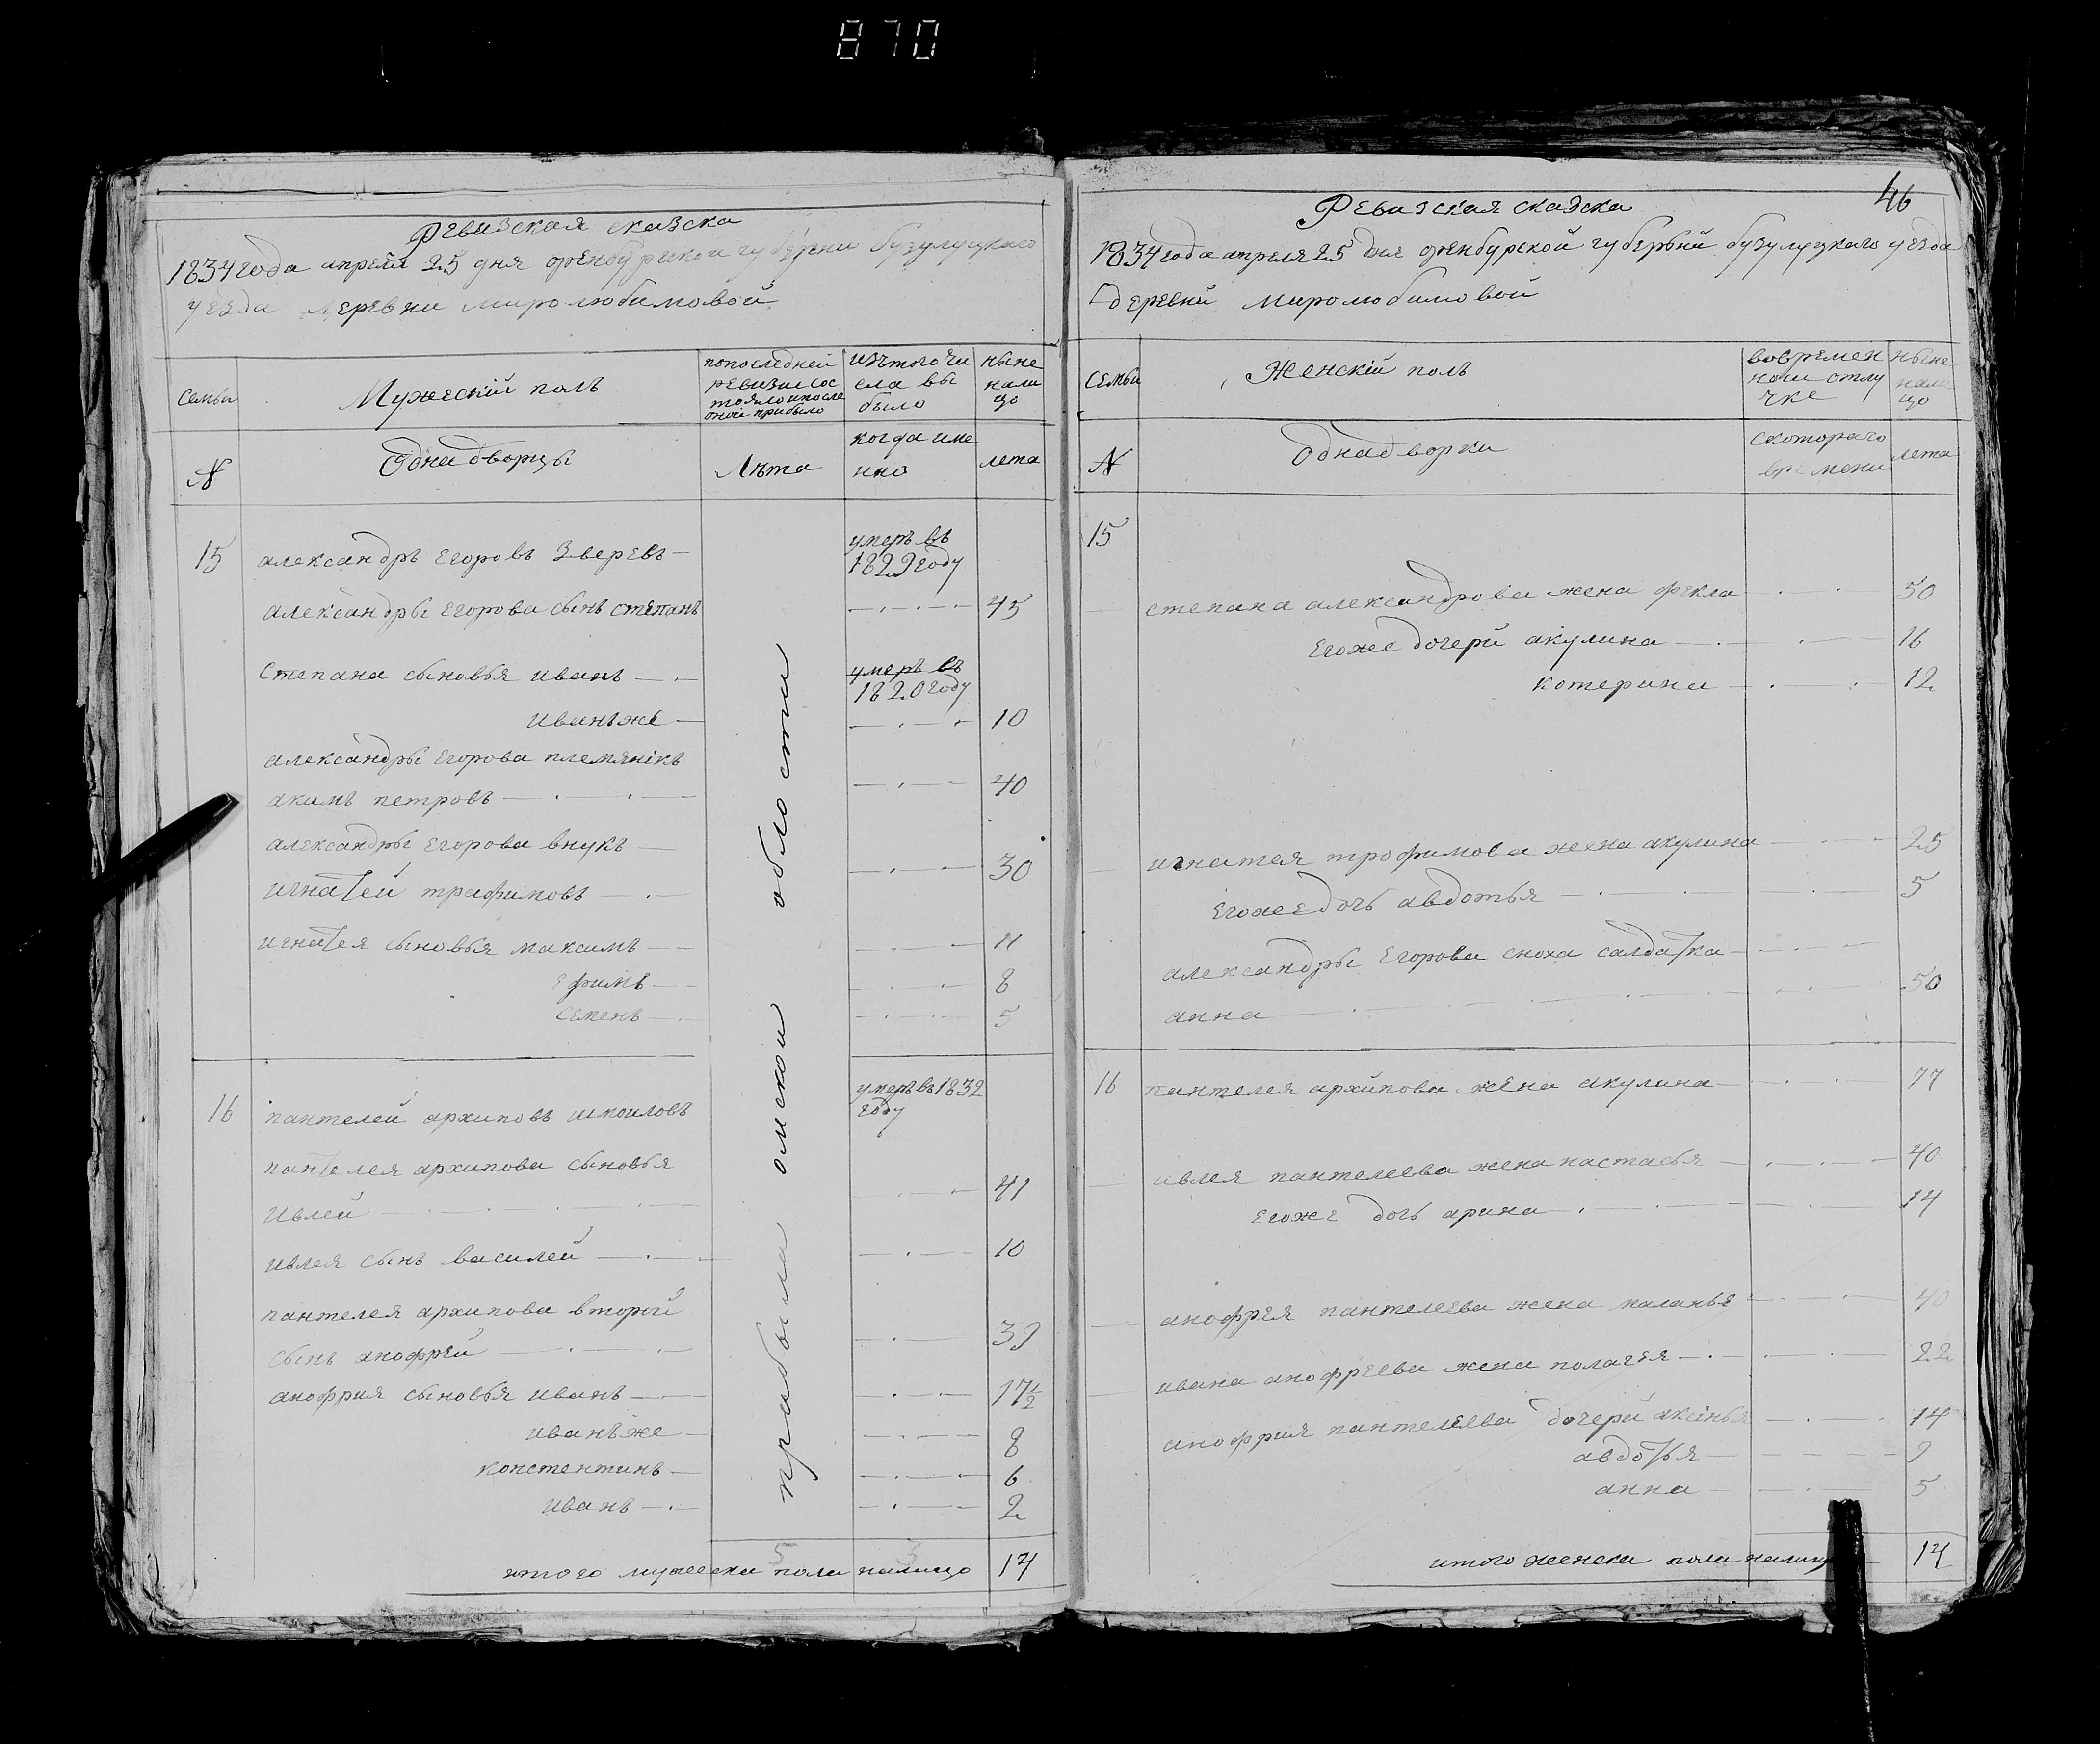 870
Ревизская сказска
1834 года апреля 25 дня оренбургской губернии бузулуцкаго
уезда деревни миролюбимовой
семьи
Мужескій полъ
попоследней
ревизии сос
тояло ипосле
оной прибыло
изъ того чи
сла вы
было
ныне
нали
цо
№
Однадворцы
Лѣта
когда име
нно
лета
15
александръ Егоровъ Зверевъ
умеръ въ
1829 году
александры Егорова сынъ степанъ
45
степана сыновья иванъ
умеръ въ
1820 году
иванъже
10
александры Егорова племянікъ
акимъ петровъ
40
александры Егорова внукъ
игнатей трафимовъ
30
игнатея сыновья максимъ
11
Ефимъ
8
семенъ
5
прибыли омской области
16
пантелей архиповъ
умеръ въ 1832
году
пантелея архипова сыновья
Ивлей
41
ивлея сынъ василей
10
пантелея архипова второй
сынъ анофрей
39
анофрия сыновья иванъ
17½
иванъже
8
констентинъ
6
иванъ
2
5 3
итого мужеска пола налицо 14
46
Ревизская сказска
1834 года апреля 25 дня оренбурской губерьний бузулуцкаго уезда
деревни миролюбимовой
семьи
Женскій полъ
вовремен
ной отлу
чке
ныне
нали
цо
№
однадворки
скотораго
времени
лета
15
степана александрова жена фекла
50
Егоже дочери акулина
16
котерина
12
игнатея трофимова жена акулина
25
Егоже дочь авдотья
5
александры Егорова сноха салдатка
анна
50
16
пантелея архипова жена акулина
77
ивлея пантелеева жена настасья
40
Егоже дочь арина
14
анофрея пантелеева жена маланья
40
ивана анофреева жена полагея
22
анофрия пантелеева дочери аксінья
14
авдотья
9
анна
5
итого женска пола налицо 14